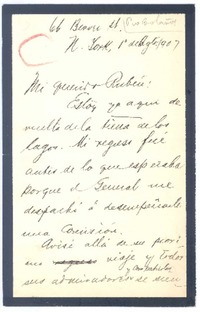 66 Beaver St.
N. York, 1º de Agto, 1907
Mi querido Rubén:
Estoy ya aquí de
vuelta de la tierra de los
lagos. Mi regreso fué
antes de lo que esperaba
porque el General me
despachó á desempeñarle
una Comisión.
Avisé allá de su próxi
mo viaje y todos
sus admiradores se